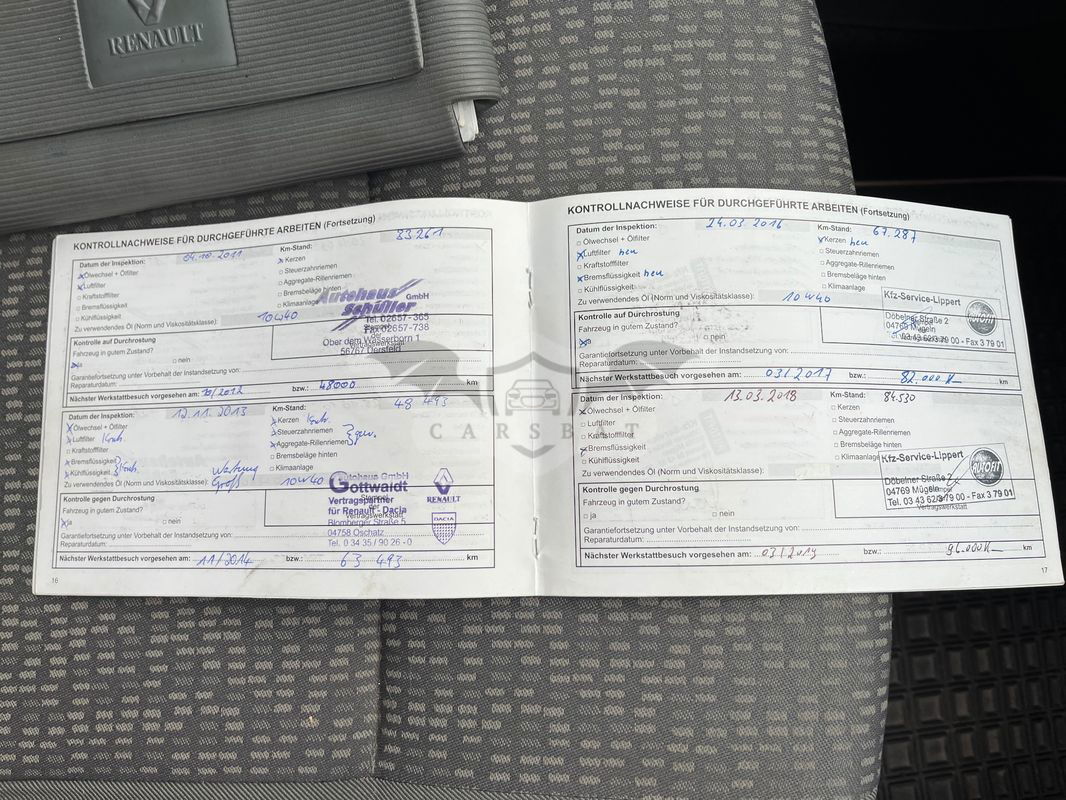 RENAULT
KONTROLLNACHWEISE FÜR DURCHGEFÜHRTE ARBEITEN (Fortsetzung)
Datum der Inspektion: 04.10.2011 Km-Stand: 33.261
Ölwechsel + Ölfilter
Luftfilter
Kraftstofffilter
Bremsflüssigkeit
Kühlflüssigkeit
Kerzen
Steuerzahnriemen
Aggregate-Rillenriemen
Bremsbeläge hinten
Klimaanlage
Zu verwendendes Öl (Norm und Viskositätsklasse): 10W40
Autohaus GmbH
Schüller
Tel. 02657-363
Fax 02657-738
Ober dem Wasserborn 1
56767 Uersfeld
Kontrolle auf Durchrostung
Fahrzeug in gutem Zustand?
ja nein
Garantiefortsetzung unter Vorbehalt der Instandsetzung von:
Reparaturdatum:
Nächster Werkstattbesuch vorgesehen am: 10/2012 bzw.: 48000 km
Datum der Inspektion: 12.11.2013 Km-Stand: 48 493
Ölwechsel + Ölfilter
Luftfilter
Kraftstofffilter
Bremsflüssigkeit
Kühlflüssigkeit
Kerzen
Steuerzahnriemen
Aggregate-Rillenriemen
Bremsbeläge hinten
Klimaanlage
Wartung
Groß
Zu verwendendes Öl (Norm und Viskositätsklasse): 10W40
Autohaus GmbH
Gottwaldt
Vertragspartner
für Renault - Dacia
Blomberger Straße 5
04758 Oschatz
Tel. 0 34 35 / 90 26 - 0
RENAULT
DACIA
Kontrolle gegen Durchrostung
Fahrzeug in gutem Zustand?
ja nein
Garantiefortsetzung unter Vorbehalt der Instandsetzung von:
Reparaturdatum:
Nächster Werkstattbesuch vorgesehen am: 11/2014 bzw.: 63 493 km
16
KONTROLLNACHWEISE FÜR DURCHGEFÜHRTE ARBEITEN (Fortsetzung)
Datum der Inspektion: 24.03.2016 Km-Stand: 67.287
Ölwechsel + Ölfilter
Luftfilter neu
Kraftstofffilter
Bremsflüssigkeit neu
Kühlflüssigkeit
Kerzen neu
Steuerzahnriemen
Aggregate-Rillenriemen
Bremsbeläge hinten
Klimaanlage
Zu verwendendes Öl (Norm und Viskositätsklasse): 10W40
Kfz-Service-Lippert
Döbelner Straße 2
04769 Mügeln
Tel. 03 43 62/3 79 00 - Fax 3 79 01
AUTOFIT
Kontrolle auf Durchrostung
Fahrzeug in gutem Zustand?
ja nein
Garantiefortsetzung unter Vorbehalt der Instandsetzung von:
Reparaturdatum:
Nächster Werkstattbesuch vorgesehen am: 03/2017 bzw.: 82.000 km
Datum der Inspektion: 13.03.2018 Km-Stand: 84530
Ölwechsel + Ölfilter
Luftfilter
Kraftstofffilter
Bremsflüssigkeit
Kühlflüssigkeit
Kerzen
Steuerzahnriemen
Aggregate-Rillenriemen
Bremsbeläge hinten
Klimaanlage
Zu verwendendes Öl (Norm und Viskositätsklasse):
Kfz-Service-Lippert
Döbelner Straße 2
04769 Mügeln
Tel. 03 43 62/3 79 00 - Fax 3 79 01
Vertragswerkstatt
AUTOFIT
Kontrolle gegen Durchrostung
Fahrzeug in gutem Zustand?
ja nein
Garantiefortsetzung unter Vorbehalt der Instandsetzung von:
Reparaturdatum:
Nächster Werkstattbesuch vorgesehen am: 03/2019 bzw.: km
17
CARSBAT